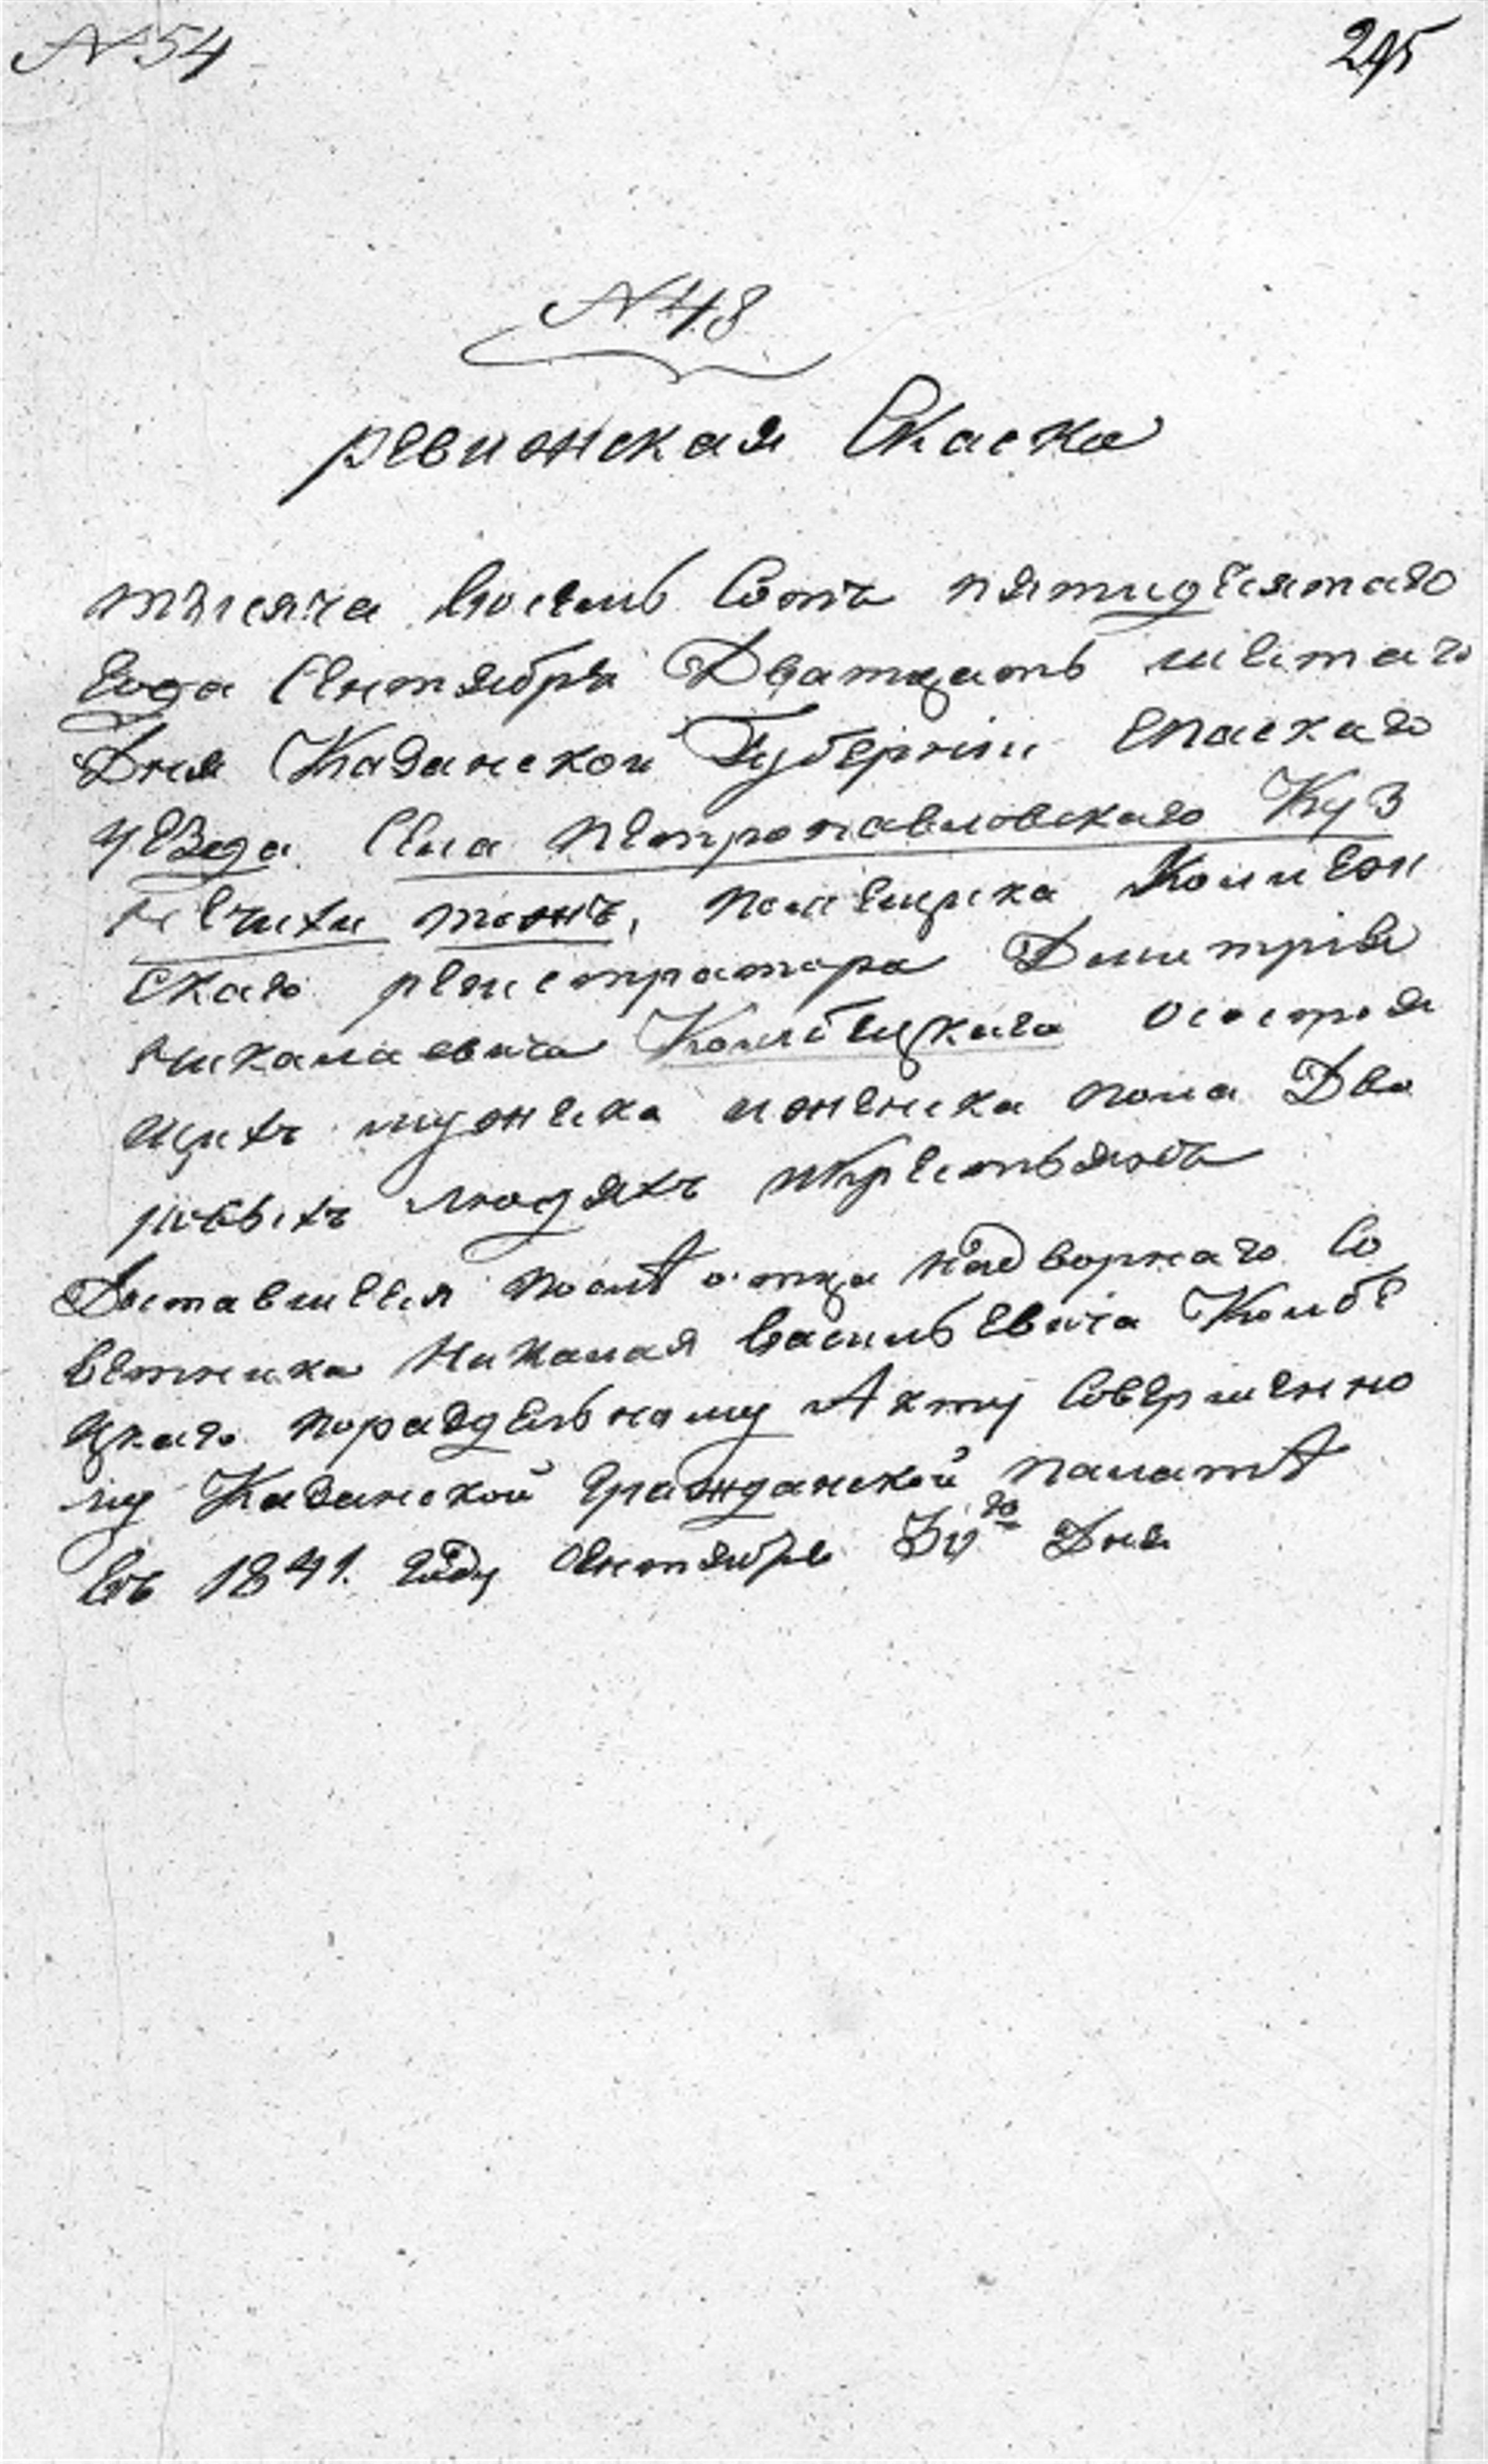 № 54
295
№ 48
ревижская Скаска
тысяча Восемь Сотъ пятидесятаго
Года Сентября Дватцать шестаго
Дня Казанской Губерніи Спаскаго
уезда Села петропавловскаго Куз
нечихи тожъ, помещика Колнеж
скаго режистратора Дмитрія
Никалаевича осостроя
щихъ мужеска иженска пола Дво
ровыхъ людяхъ икрестьянъ
Доставшееся послѣ отца надворнаго Со
ветника Никалая Васильевича
цкаго пораздельному Акту Совершенно
му Казанской гражданской палатѣ
Въ 1841. году Сентября 30го Дня